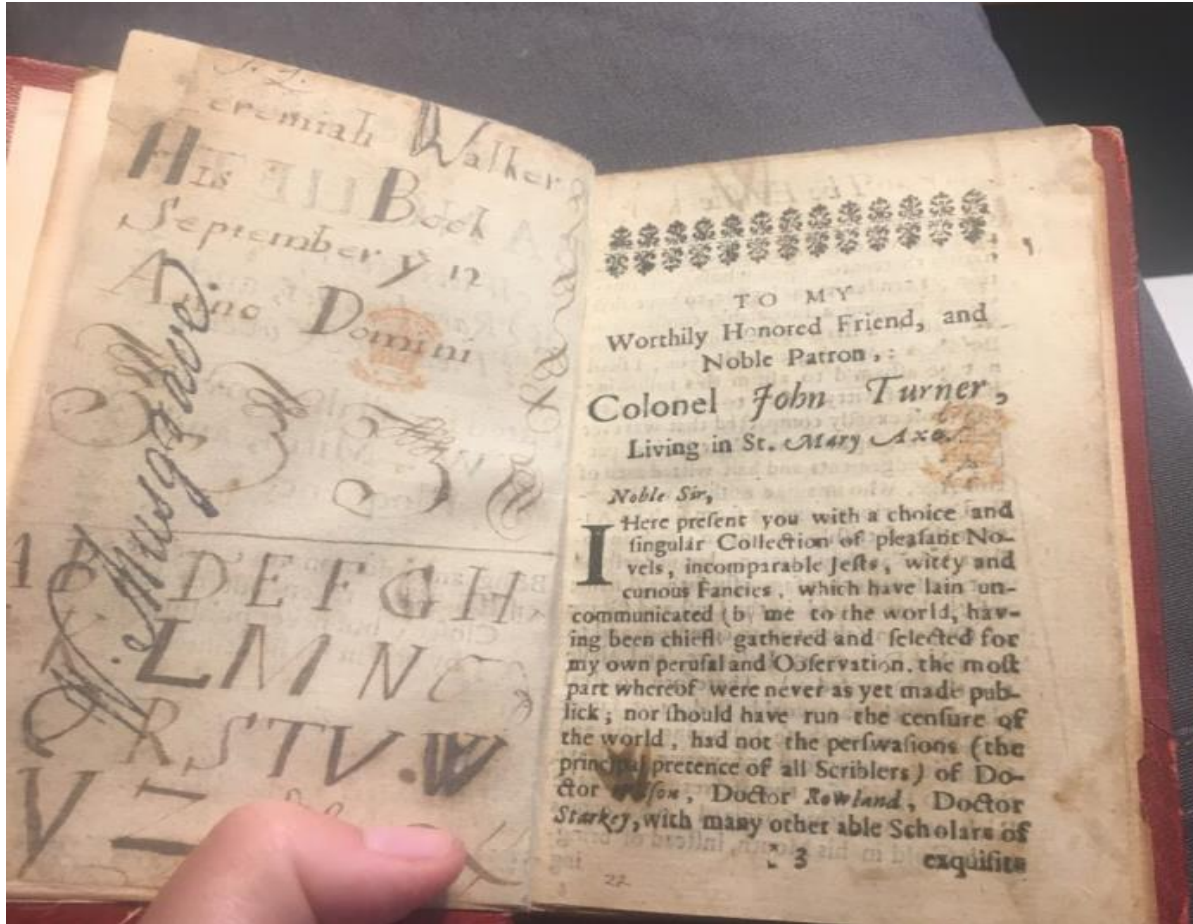 J. L.
eremiah Walker
HIs Book
September yͤ 12
Anno Domini
W. Musgrave
A B D E F G H
L M N O
R S T V. W
V Z
TO MY
Worthily Honored Friend, and
Noble Patron,:
Colonel John Turner,
Living in St. Mary Axe.
Noble Sir,
I Here preſent you with a choice and
ſingular Collection of pleaſant No-
vels, incomparable Jeſts, witty and
curious Fancies, which have lain un-
communicated (by me to the world, hav-
ing been chiefl gathered and ſelected for
my own peruſal and Obſervation. the moſt
part whereof were never as yet made pub-
lick; nor ſhould have run the cenſure of
the world, had not the perſwaſions (the
principal pretence of all Scriblers) of Do-
ctor Doctor Rowland, Doctor
Starkey, with many other able Scholars of
3
exquiſite
22